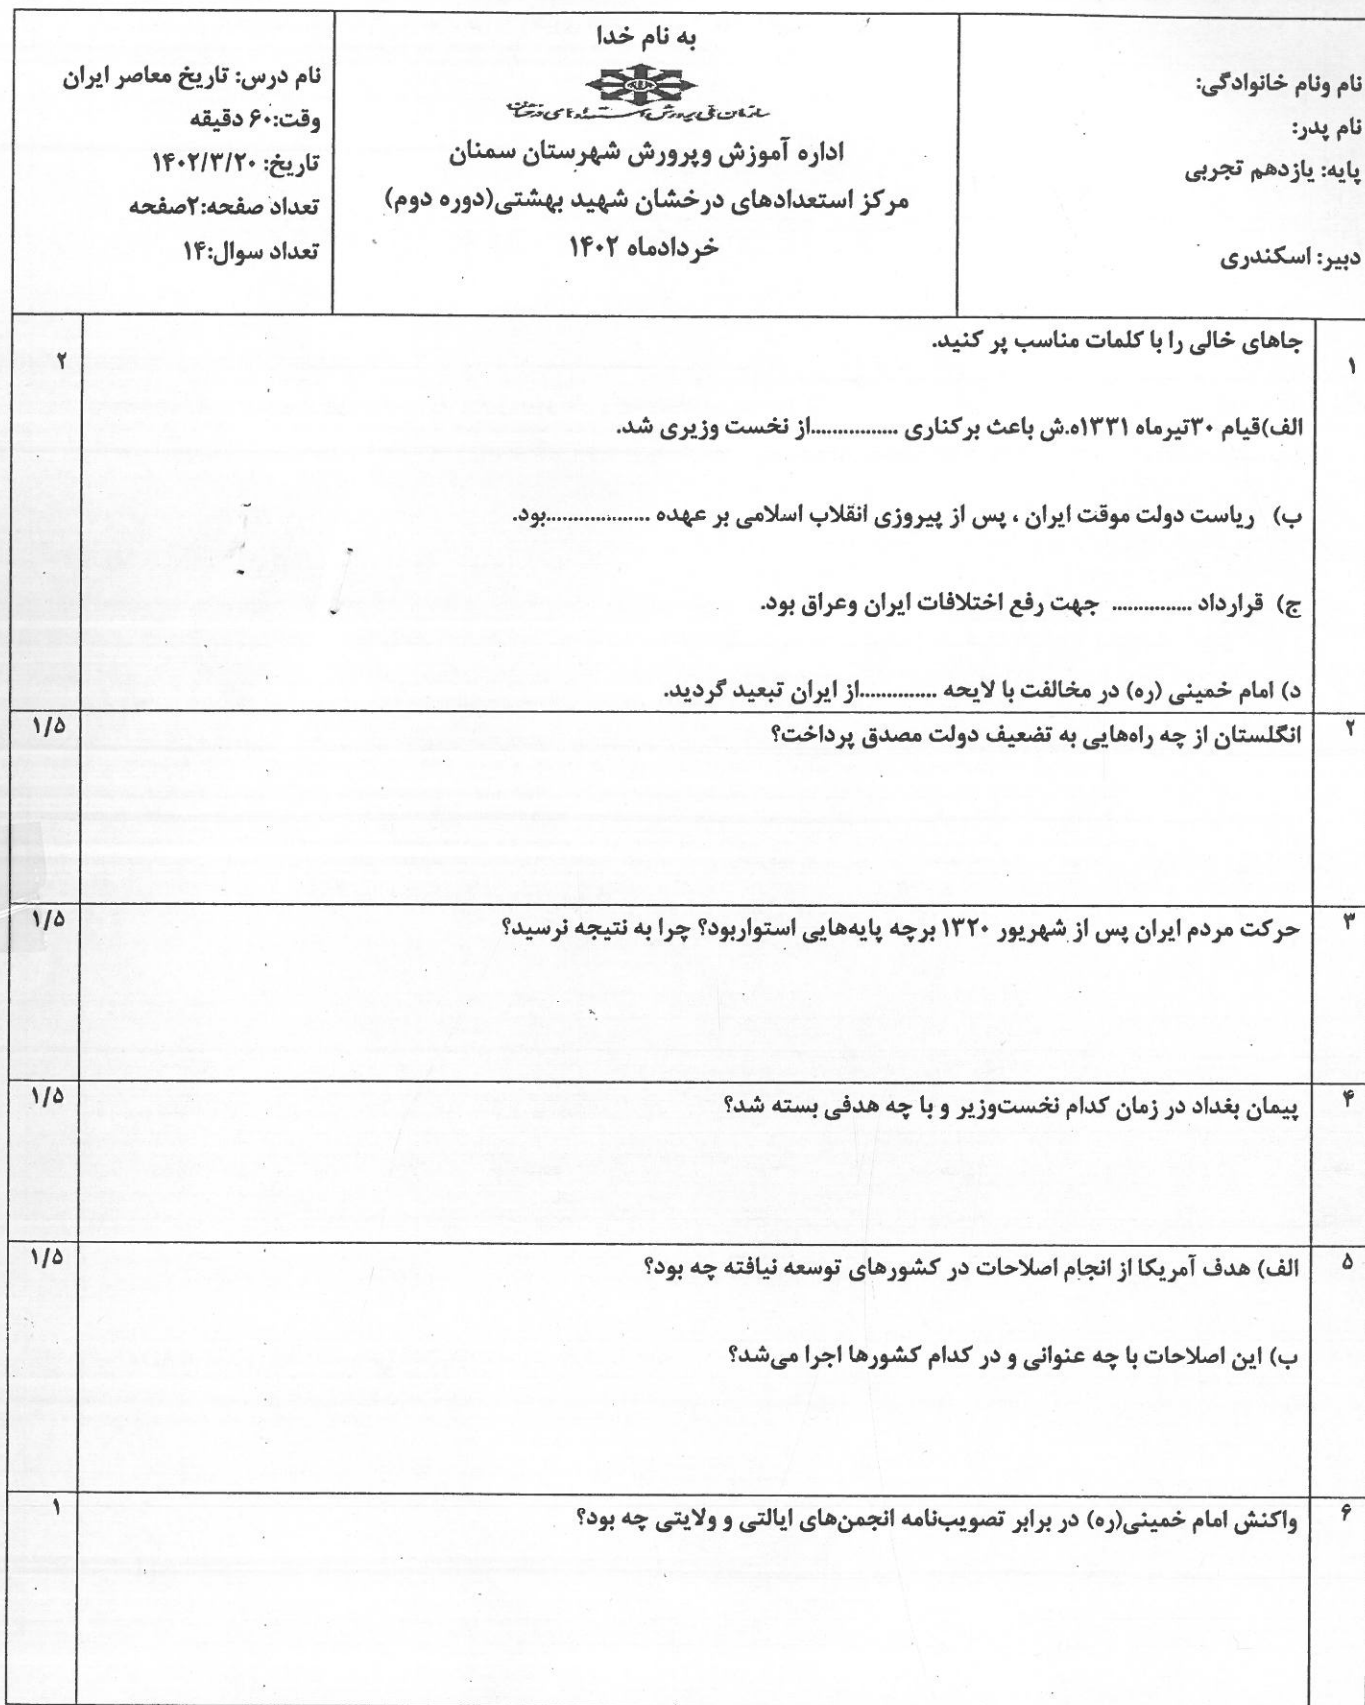 به نام خدا
سازمان ملی پرورش استعدادهای درخشان
اداره آموزش وپرورش شهرستان سمنان
مرکز استعدادهای درخشان شهید بهشتی(دوره دوم)
خردادماه ۱۴۰۲
نام ونام خانوادگی:
نام پدر:
پایه: یازدهم تجربی
دبیر: اسکندری
نام درس: تاریخ معاصر ایران
وقت:۶۰ دقیقه
تاریخ: ۱۴۰۲/۳/۲۰
تعداد صفحه:۲صفحه
تعداد سوال:۱۴
۱ جاهای خالی را با کلمات مناسب پر کنید. ۲
الف)قیام ۳۰تیرماه ۱۳۳۱ه.ش باعث برکناری ................از نخست وزیری شد.
ب) ریاست دولت موقت ایران ، پس از پیروزی انقلاب اسلامی بر عهده ...................بود.
ج) قرارداد ............... جهت رفع اختلافات ایران وعراق بود.
د) امام خمینی (ره) در مخالفت با لایحه ..............از ایران تبعید گردید.
۲ انگلستان از چه راه‌هایی به تضعیف دولت مصدق پرداخت؟ ۱/۵
۳ حرکت مردم ایران پس از شهریور ۱۳۲۰ برچه پایه‌هایی استواربود؟ چرا به نتیجه نرسید؟ ۱/۵
۴ پیمان بغداد در زمان کدام نخست‌وزیر و با چه هدفی بسته شد؟ ۱/۵
۵ الف) هدف آمریکا از انجام اصلاحات در کشورهای توسعه نیافته چه بود؟ ۱/۵
ب) این اصلاحات با چه عنوانی و در کدام کشورها اجرا می‌شد؟
۶ واکنش امام خمینی(ره) در برابر تصویب‌نامه انجمن‌های ایالتی و ولایتی چه بود؟ ۱